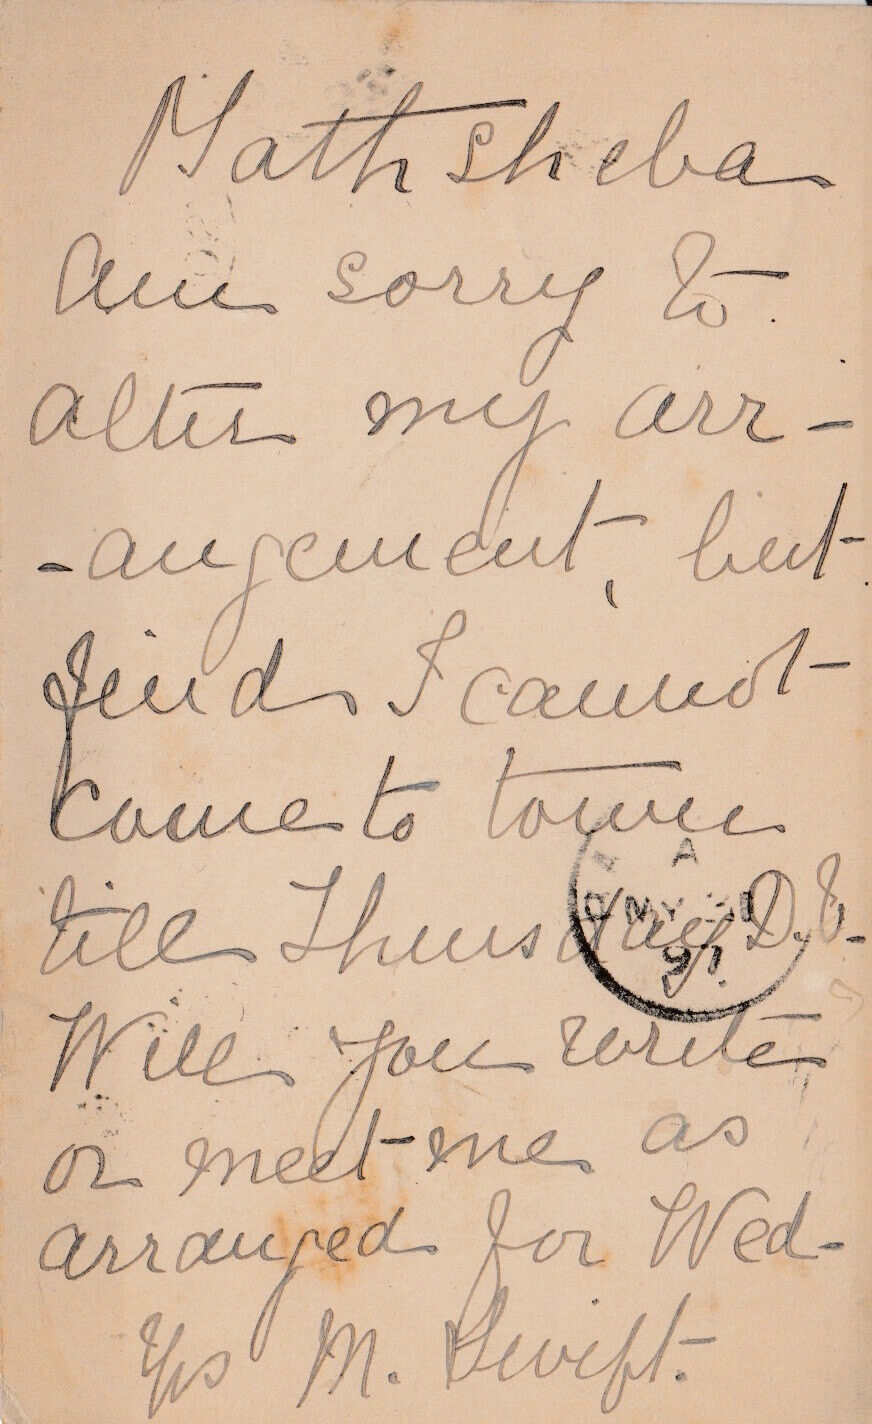 Mathsheba
Am sorry to
alter my arr-
-angement, but
find I cannot
come to town
till Thursday D.V.
A
MY 11
97
Will you write
or meet me as
arranged for Wed-
Yrs M. Swift.